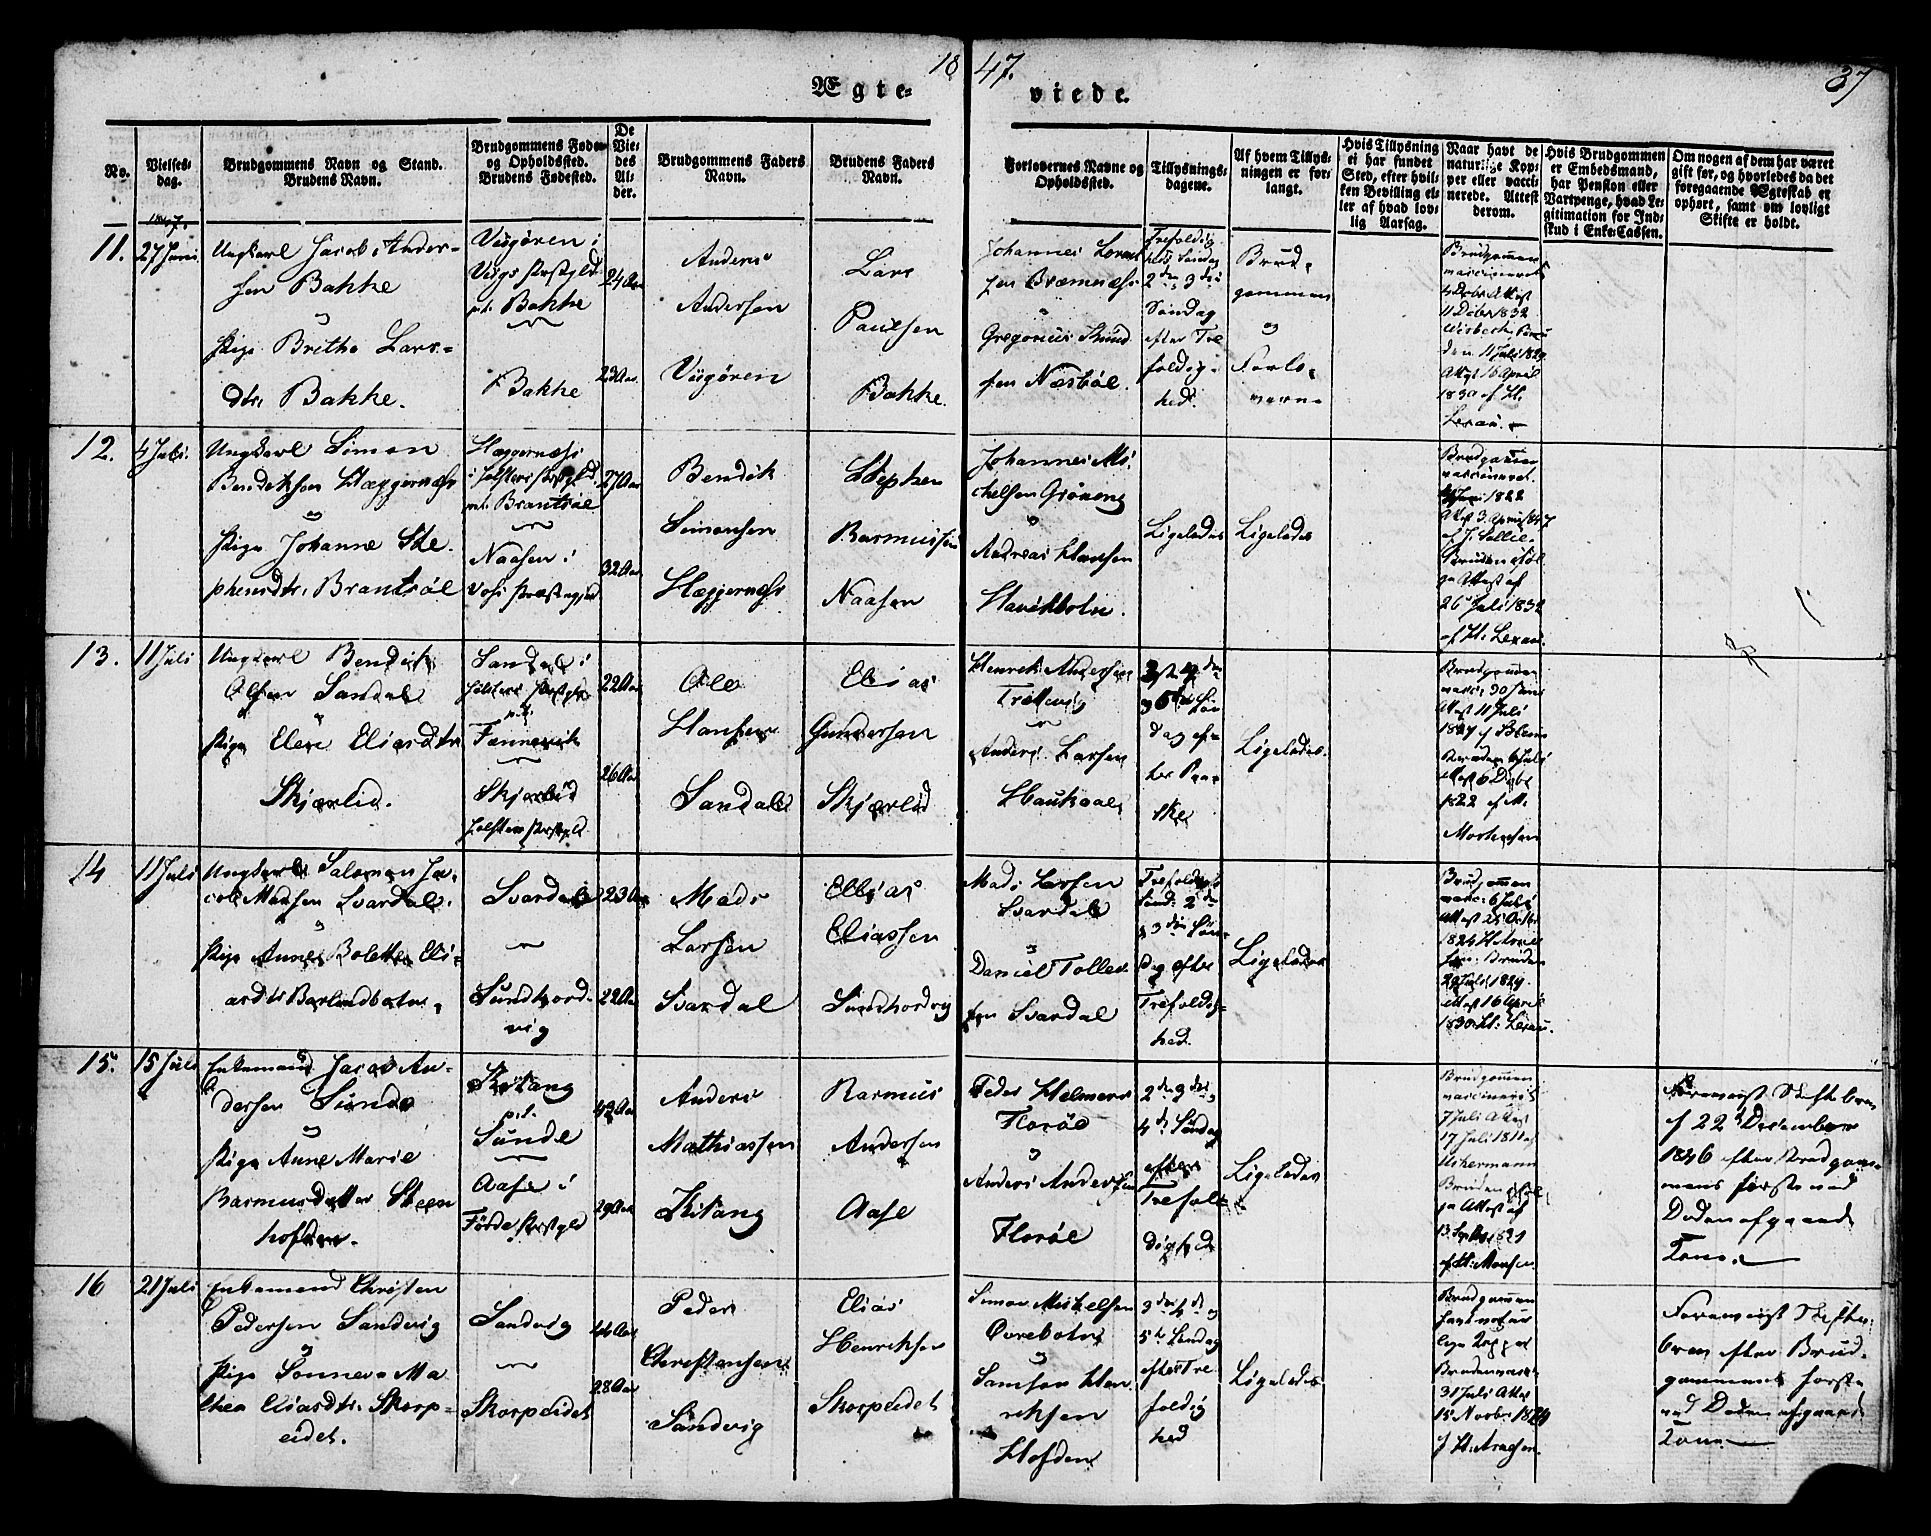 1847.
37
Ægte- viede.
No.
Vielses-
dag.
Brudgommens Navn og Stand.
Brudens Navn.
Brudgommens Føde-
og Opholdssted.
Brudens Fødested.
De
Vie-
des
Al-
der.
Brudgommens Faders
Navn.
Brudens Faders
Navn.
Forlovernes Navne og
Opholdssted.
Tillysnings-
dagene.
Af hvem Tillys-
ningen er for-
langt.
Hvis Tillysning
ei har fundet
Sted, efter hvil-
ken Bevilling el-
ler af hvad lov-
lig Aarsag.
Naar havt de
naturlige Kop-
per eller vacci-
nerede. Attest
derom.
Hvis Brudgommen
er Embedsmand,
har Pension eller
Vartpenge, hvad Le-
gitimation for Ind-
skud i Enke-Cassen.
Om nogen af dem har været
gift før, og hvorledes da det
foregaaende Ægteskab er
ophørt, samt om lovligt
Skifte er holdt.
1847.
11.
27 Juni
Ungkarl Jacob Ander-
sen Bakke
og
Pige Brithe Lars-
dtr. Bakke.
Viigøren i
Viigs Præstgld
p.t. Bakke
Bakke
24 Aar
23 Aar
Anders
Andersen
Viigøren
Lars
Paulsen
Bakke
Johannes Lorent
sen Bræmnæs
&
Gregorius Knud
sen Næsbøe.
Trefoldig
heds Søndag
2den 3die
Søndag
efter Tre
foldig-
hed.
Brud-
gommen
og
Forlo-
verne
Brudgommen
vaccineret
4 Debr Attest
11 Debr 1832
den 11 Juli 1829
Attest 16 April
1830 af H.
Lexau.
12.
4 Juli.
Ungkarl Simon
Bendiksen Hæggernæs
og
Pige Johanne Ste-
phensdtr. Brantsøe
Hæggernæs
i Jølsters Præstgld
p.t. Brantsøe
Naasen i
Vos Præstegjeld
27 Aar
32 Aar
Bendik
Simonsen
Hæggernæs
Stephen
Rasmussen
Naasen
Johannes Mi-
chelsen Grønong
&
Andreas Hansen
Havikbotn.
Ligeledes
Ligeledes
Brudgommen
vaccineret
1822
Attest 3 April 1847
Bruden
Attest af
26 Juli 1832
af H. Lexau.
13.
11 Juli
Ungkarl Bendik
Olsen Sandal
&
Pige Elen Eliasdtr
Skjærlid.
Sandal i
Jølsters Præstgld
p.t.
Fannevik
Skjærlid
Jølsters Præstgld.
22 Aar
26 Aar
Ole
Hansen
Sandal
Elias
Gundersen
Skjærlid
Henrik Andersen
Trettevig
Anders Larsen
Haukaae
Søn
dag ef-
ter Paa-
ske
Ligeledes.
Brudgommen
vacc. 30 Juni
Attest 11 Juli
1827
Bruden 6 Juli
Attest 6 Debr
1822 af M.
Mortensen
14
11 Juli
Ungkarl Salomon Ja-
cob Madsen Svardal.
&
Pige Anne Bolette Eli-
asdtr Barlindbotn.
Svardal
Sundhord-
vig
23 Aar
22 Aar
Mads
Larsen
Svardal
Ellias
Eliassen
Sundhordvig
Mads Larsen
Svardal
&
Daniel Tollev
sen Svardal
Trefoldigh
Sønd: 2den
& 3die Søn-
dag efter
Trefoldig-
hed.
Ligeledes
Brudgommen
vacc: 6 Juli
Attest 25 Octbr
1824
Bruden
29 Juli 1829.
Attest 16 April
1830 H: Lexau.
15.
15 Juli
Enkemand Jacob An-
dersen Sunde
&
Pige Anne Marie
Rasmusdatter Steen
hofden.
Kitang
p.t.
Sunde
Aase i
Førde Præstgld
42 Aar
29 Aar
Anders
Mathiassen
Kitang
Rasmus
Andersen
Aase
Peder Helmers
Florøe
&
Anders Andersen
Florøe
2den 3die &
4de Søndag
efter
Trefol-
dighed
Ligeledes
Brudgommen
vaccineret
7 Juli Attest
17 Juli 1811 af
Uchermann
Bruden
Attest af
af H: Monsen.
Foreviist Skiftebrev
af 22 December
1846 efter Brudgom-
mens første ved
Døden afgaaede
Kone.
16
21 Juli
Enkemand Christen
Pedersen Sandvig
&
Pige Sønneva Ma
thea Eliasdtr. Skorp-
eidet.
Sandvig
Skorpeidet
46 Aar
28 Aar
Peder
Christensen
Sandvig
Elias
Henriksen
Skorpeidet
Simon Mikkelsen
Øvrebotn
&
Samson Hen-
riksen
Hofden
3die 4de &
5te Søndag
efter Tre-
foldig
hed
Ligeledes
Brudgommen
havt natur
lige Kopper
Bruden vacc:
31 Juli Attest
15 Novbr 1829
Foreviist Skifte-
brev efter Brud-
gommens første
ved Døden afgaaede
Kone